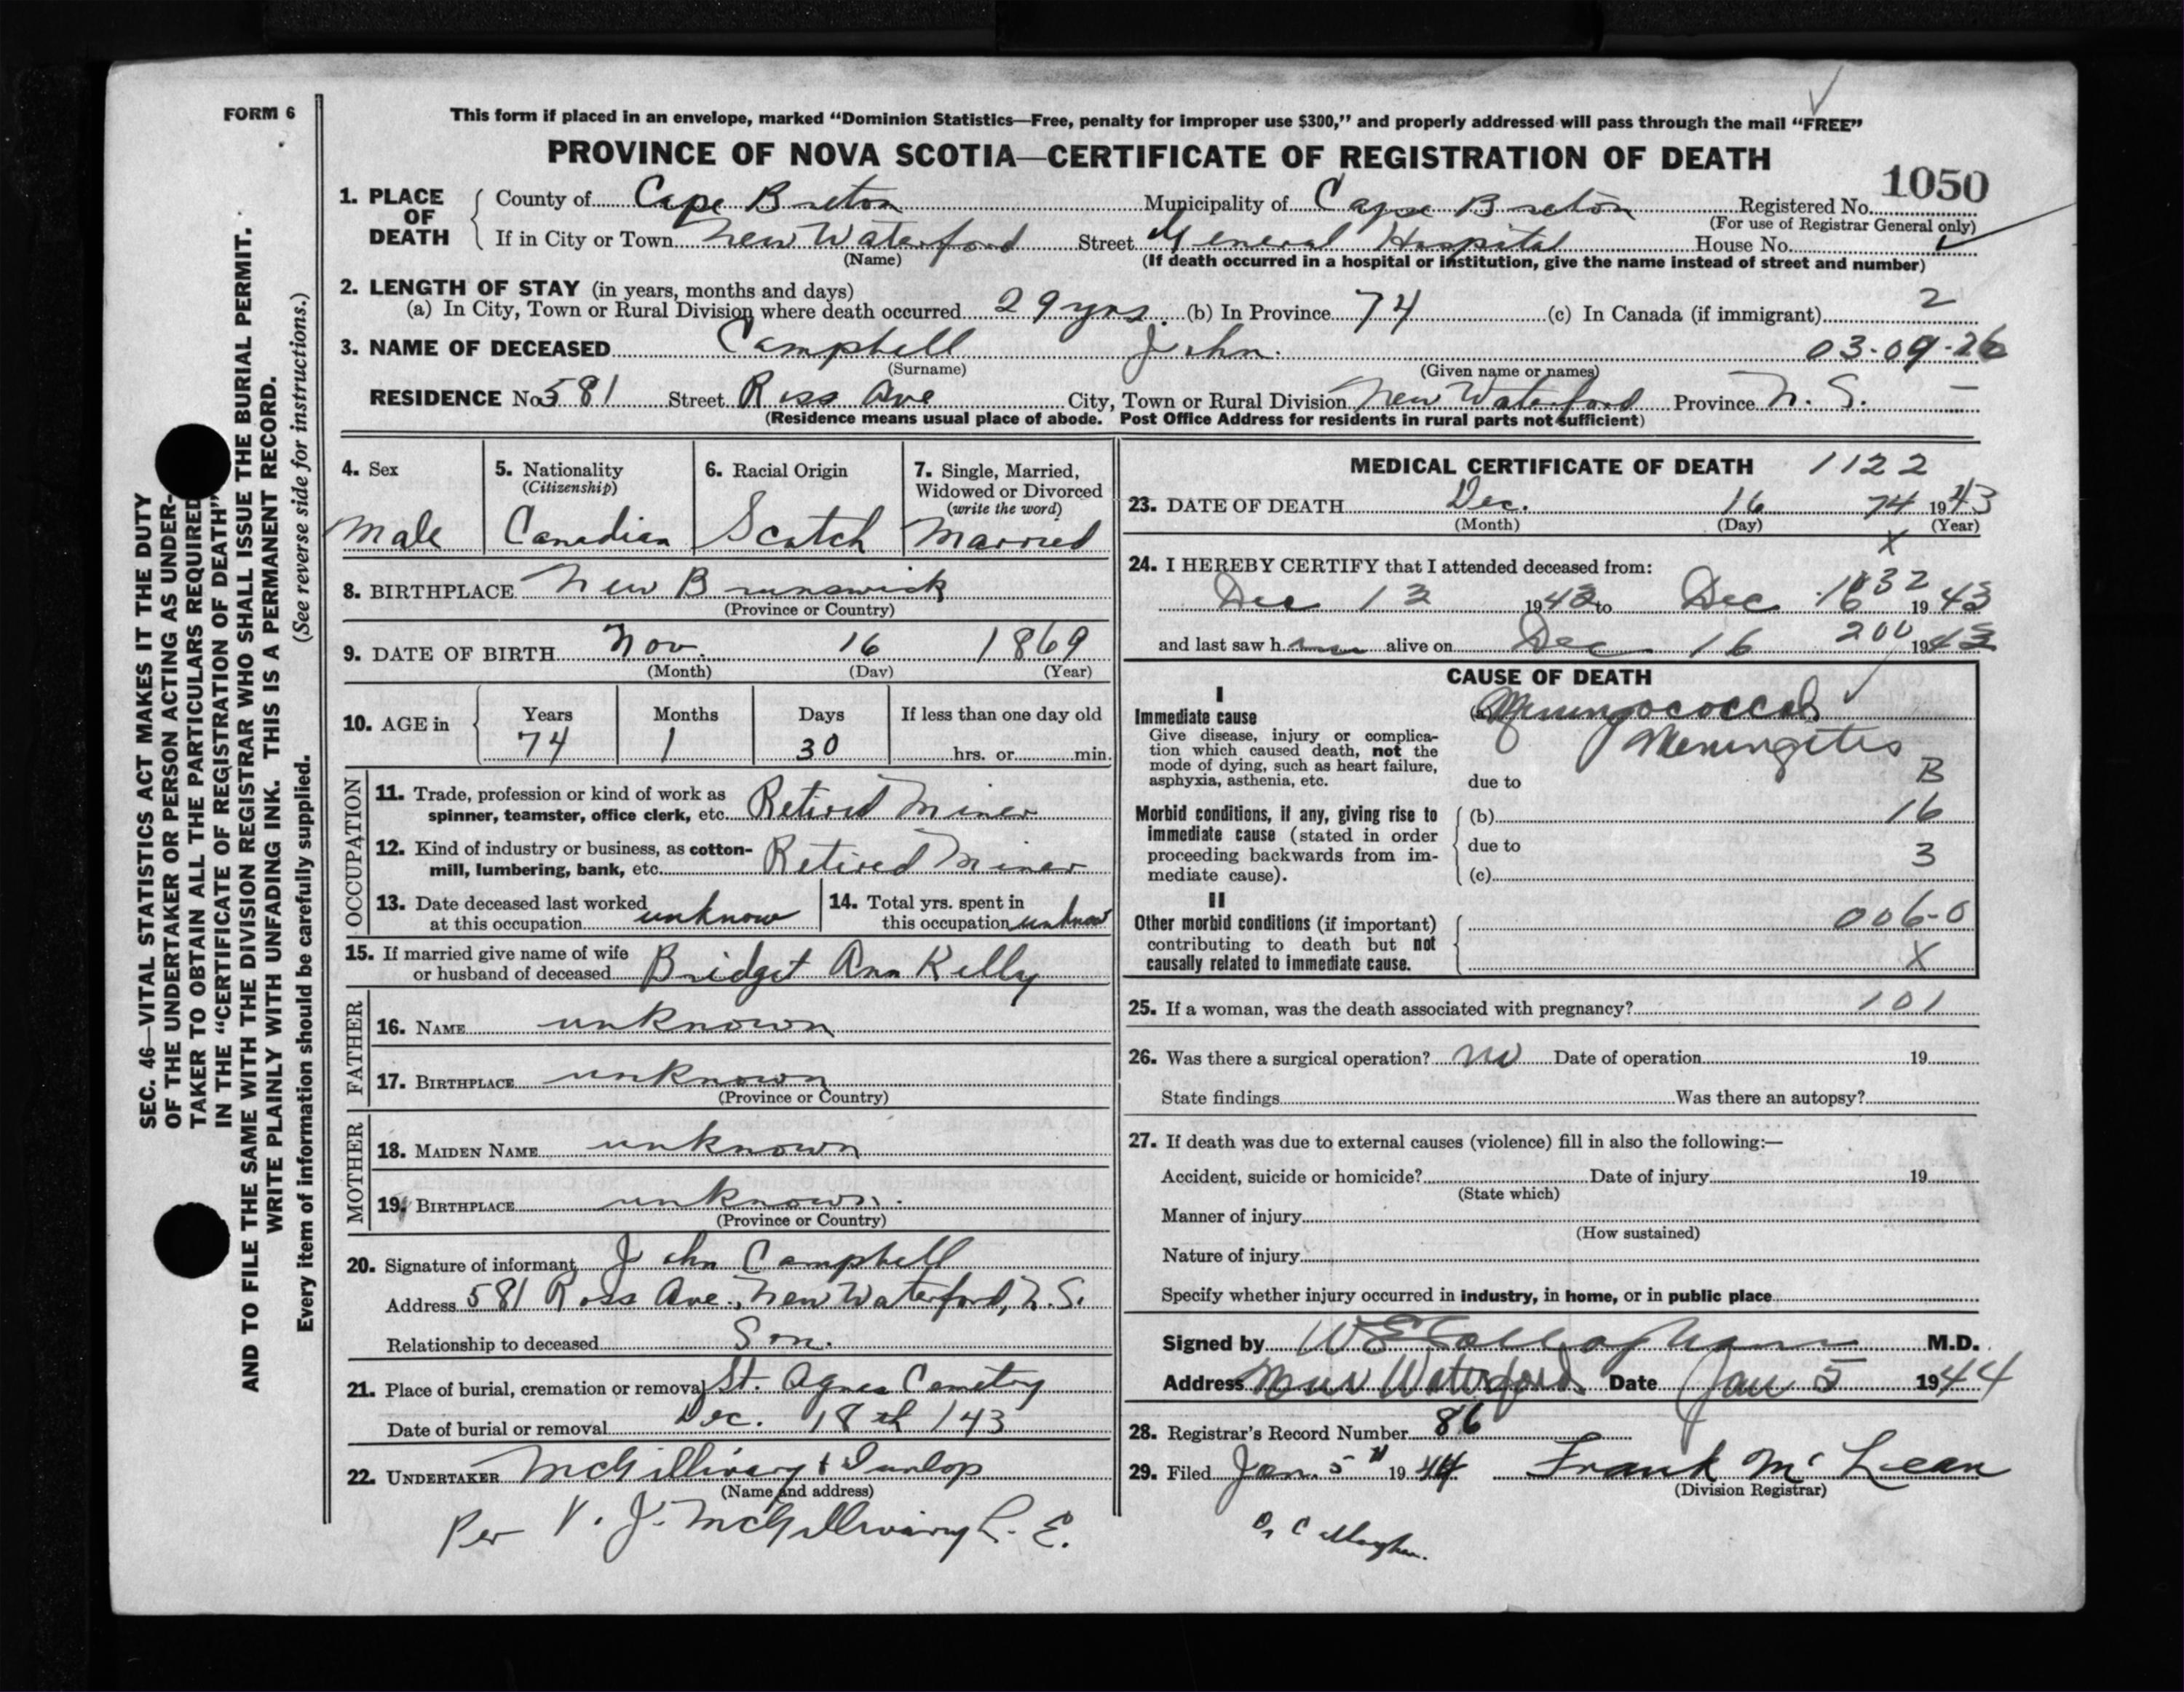 FORM 6
This form if placed in an envelope, marked "Dominion Statistics—Free, penalty for improper use $300," and properly addressed will pass through the mail "FREE"
PROVINCE OF NOVA SCOTIA—CERTIFICATE OF REGISTRATION OF DEATH
1050
1. PLACE OF DEATH County of Cape Breton Municipality of Cape Breton Registered No.
(For use of Registrar General only)
If in City or Town New Waterford Street General Hospital House No.
(Name) (If death occurred in a hospital or institution, give the name instead of street and number)
2. LENGTH OF STAY (in years, months and days)
(a) In City, Town or Rural Division where death occurred 29 yrs. (b) In Province 74 (c) In Canada (if immigrant) 2
3. NAME OF DECEASED Campbell John. 03-09-26
(Surname) (Given name or names)
RESIDENCE No 581 Street Ross Ave City, Town or Rural Division New Waterford Province N. S. –
(Residence means usual place of abode. Post Office Address for residents in rural parts not sufficient)
4. Sex
Male
5. Nationality
(Citizenship)
Canadian
6. Racial Origin
Scotch
7. Single, Married,
Widowed or Divorced
(write the word)
Married
8. BIRTHPLACE New Brunswick
(Province or Country)
9. DATE OF BIRTH Nov. 16 1869
(Month) (Day) (Year)
10. AGE in Years Months Days If less than one day old
74 1 30 hrs. or min.
OCCUPATION
11. Trade, profession or kind of work as
spinner, teamster, office clerk, etc. Retired Miner
12. Kind of industry or business, as cotton-
mill, lumbering, bank, etc. Retired Miner
13. Date deceased last worked
at this occupation unknow
14. Total yrs. spent in
this occupation unknow
15. If married give name of wife
or husband of deceased Bridget Ann Kelly
FATHER
16. NAME unknown
17. BIRTHPLACE unknown
(Province or Country)
MOTHER
18. MAIDEN NAME unknown
19. BIRTHPLACE unknown.
(Province or Country)
20. Signature of informant John Campbell
Address 581 Ross Ave., New Waterford, N.S.
Relationship to deceased Son.
21. Place of burial, cremation or removal St. Agnes Cemetry
Date of burial or removal Dec. 18th /43
22. UNDERTAKER McGillivary & Dunlop
(Name and address)
Per V. J. McGillivary L. E.
MEDICAL CERTIFICATE OF DEATH 1122
23. DATE OF DEATH Dec. 16 74 1943
(Month) (Day) (Year)
X
24. I HEREBY CERTIFY that I attended deceased from:
Dec 13 1943 to Dec 16 32 1943
and last saw h alive on Dec 16 200 1943
CAUSE OF DEATH
I
Immediate cause
Give disease, injury or complica-
tion which caused death, not the
mode of dying, such as heart failure,
asphyxia, asthenia, etc.
(a) Meningococcal
Meningitis
B
due to
Morbid conditions, if any, giving rise to
immediate cause (stated in order
proceeding backwards from im-
mediate cause).
(b) 16
due to
3
(c)
II
Other morbid conditions (if important)
contributing to death but not
causally related to immediate cause.
006-0
X
25. If a woman, was the death associated with pregnancy? 101
26. Was there a surgical operation? no Date of operation 19
State findings Was there an autopsy?
27. If death was due to external causes (violence) fill in also the following:—
Accident, suicide or homicide? Date of injury 19
(State which)
Manner of injury
(How sustained)
Nature of injury
Specify whether injury occurred in industry, in home, or in public place
Signed by W E O'Callaghan M.D.
Address New Waterford Date Jan 5 1944
28. Registrar's Record Number 86
29. Filed Jan. 5" 1944 Frank McLean
(Division Registrar)
O'Callaghan.
SEC. 46—VITAL STATISTICS ACT MAKES IT THE DUTY
OF THE UNDERTAKER OR PERSON ACTING AS UNDER-
TAKER TO OBTAIN ALL THE PARTICULARS REQUIRED
IN THE "CERTIFICATE OF REGISTRATION OF DEATH"
AND TO FILE THE SAME WITH THE DIVISION REGISTRAR WHO SHALL ISSUE THE BURIAL PERMIT.
WRITE PLAINLY WITH UNFADING INK. THIS IS A PERMANENT RECORD.
Every item of information should be carefully supplied. (See reverse side for instructions.)